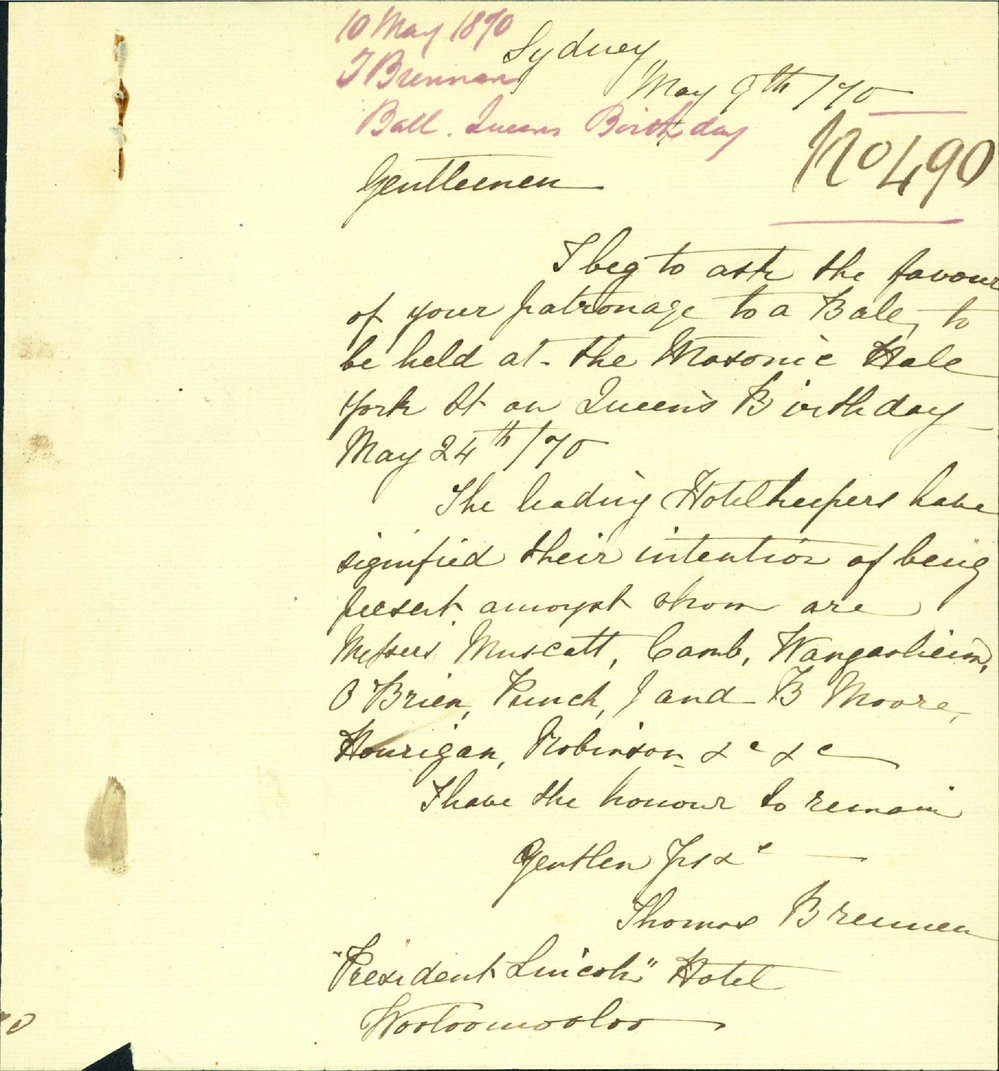 10 May 1870
T Brennan
Ball. Queens Birthday
Sydney
May 9th /70
No 490
Gentlemen
I beg to ask the favour
of your patronage to a Ball, to
be held at the Masonic Hall
York St on Queen's Birthday
May 24th /70
The leading Hotelkeepers have
signified their intention of being
present amongst whom are
Messers Muscatt, Camb, Wangenheim,
O'Brien, Punch, J and B Moore,
Hourigan, Robinson &c &c
I have the honour to remain
Gentlen Yrs &c
Thomas Brennan
"President Lincoln" Hotel
Wooloomooloo